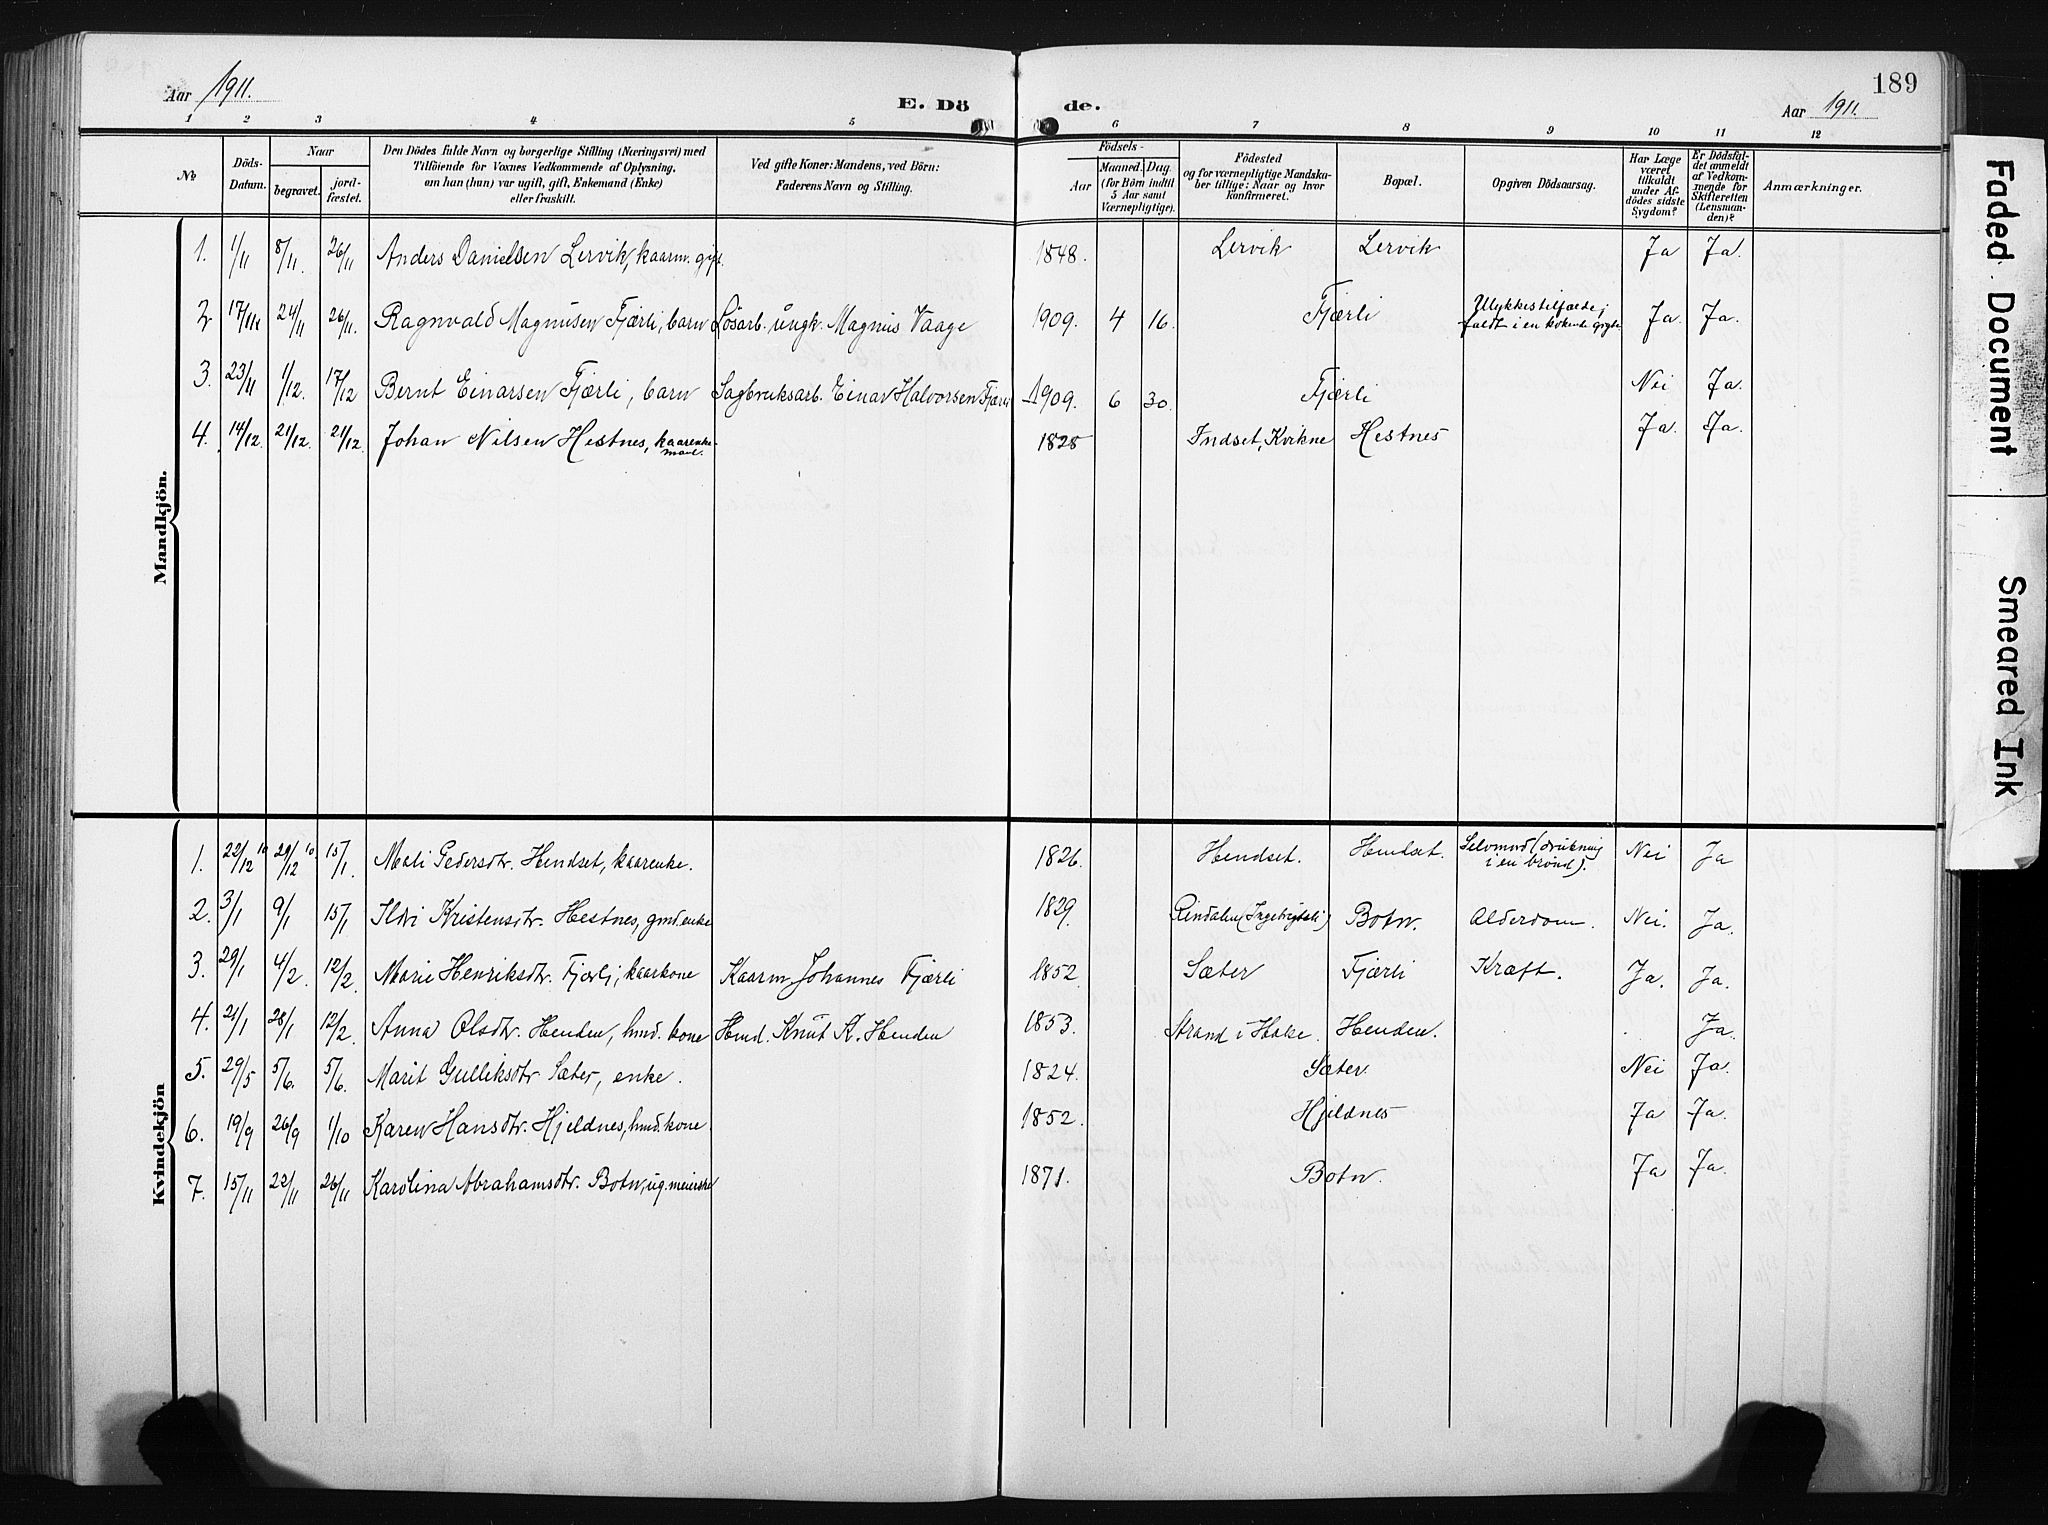 Aar 1911.
E. Dö
de.
189
Aar 1911.
1 2 3 4 5 6 7 8 9 10 11 12
№
Döds-
Datum.
Naar
begravet.
jord-
fæstet.
Den Dödes fulde Navn og borgerlige Stilling (Næringsvei) med
Tilföiende for Voxnes Vedkommende af Oplysning,
om han (hun) var ugift, gift, Enkemand (Enke)
eller fraskilt.
Ved gifte Koner: Mandens, ved Börn:
Faderens Navn og Stilling.
Födsels-
Aar
Maaned. Dag.
(for Börn indtil
5 Aar samt
Værnepligtige).
Födested
og for værnepligtige Mandska-
ber tillige: Naar og hvor
konfirmeret.
Bopæl.
Opgiven Dödsaarsag.
Har Læge
været
tilkaldt
under Af-
dödes sidste
Sygdom?
Er Dödsfal-
det anmeldt
af Vedkom-
mende for
Skifteretten
(Lensman-
den)?
Anmærkninger.
Mandkjön.
1. 1/11 8/11. 26/11 Anders Danielsen Lervik, kaarm. gift. 1848. Lervik Lervik Ja Ja.
2 17/11 24/11 26/11. Ragnvald Magnusen Fjærli, barn Løsarb. ungk. Magnus Vaage 1909. 4 16. Fjærli Ulykkestilfælde;
faldt i en kokende gryde Ja. Ja.
3. 23/11 1/12. 17/12 Bernt Einarsen Fjærli, barn Sagbruksarb. Einar Halvorsen Fjærli 1909. 6 30. Fjærli Nei Ja.
4. 14/12. 21/12. 21/12. Johan Nilsen Hestnes, kaarenke-
mand. 1828 Indset, Kvikne Hestnes Ja. Ja.
Kvindekjön
1. 22/12 10 29/12 10. 15/1. Mali Pedersdtr. Hendset, kaarenke. 1826. Hendset. Hendset. Selvmord (drukning
i en brønd). Nei Ja
2. 3/1 9/1 15/1 Ildri Kristensdtr. Hestnes, gmd. enke 1829. Rindalen (Ingebrigtsli) Botn. Alderdom. Nei. Ja.
3. 29/1 4/2. 12/2. Marie Henriksdtr. Fjærli, kaarkone Kaarm. Johannes Fjærli 1852. Sæter Fjærli Kræft. Ja. Ja.
4. 21/1 28/1 12/2. Anna Olsdtr. Henden, hmd. kone Hmd. Knut K. Henden 1853. Strand i Halse. Henden. Ja.
5. 29/5 5/6. 5/6. Marit Gulliksdtr Sæter, enke. 1824. Sæter. Nei Ja.
6. 19/9 26/9 1/10 Karen Hansdtr. Hjeldnes, hmd. kone. 1852. Hjeldnes Ja Ja.
7. 15/11 22/11 26/11 Karolina Abrahamsdtr. Botn, ug. meierske 1871. Botn. Ja Ja.
Faded Document
Smeared Ink